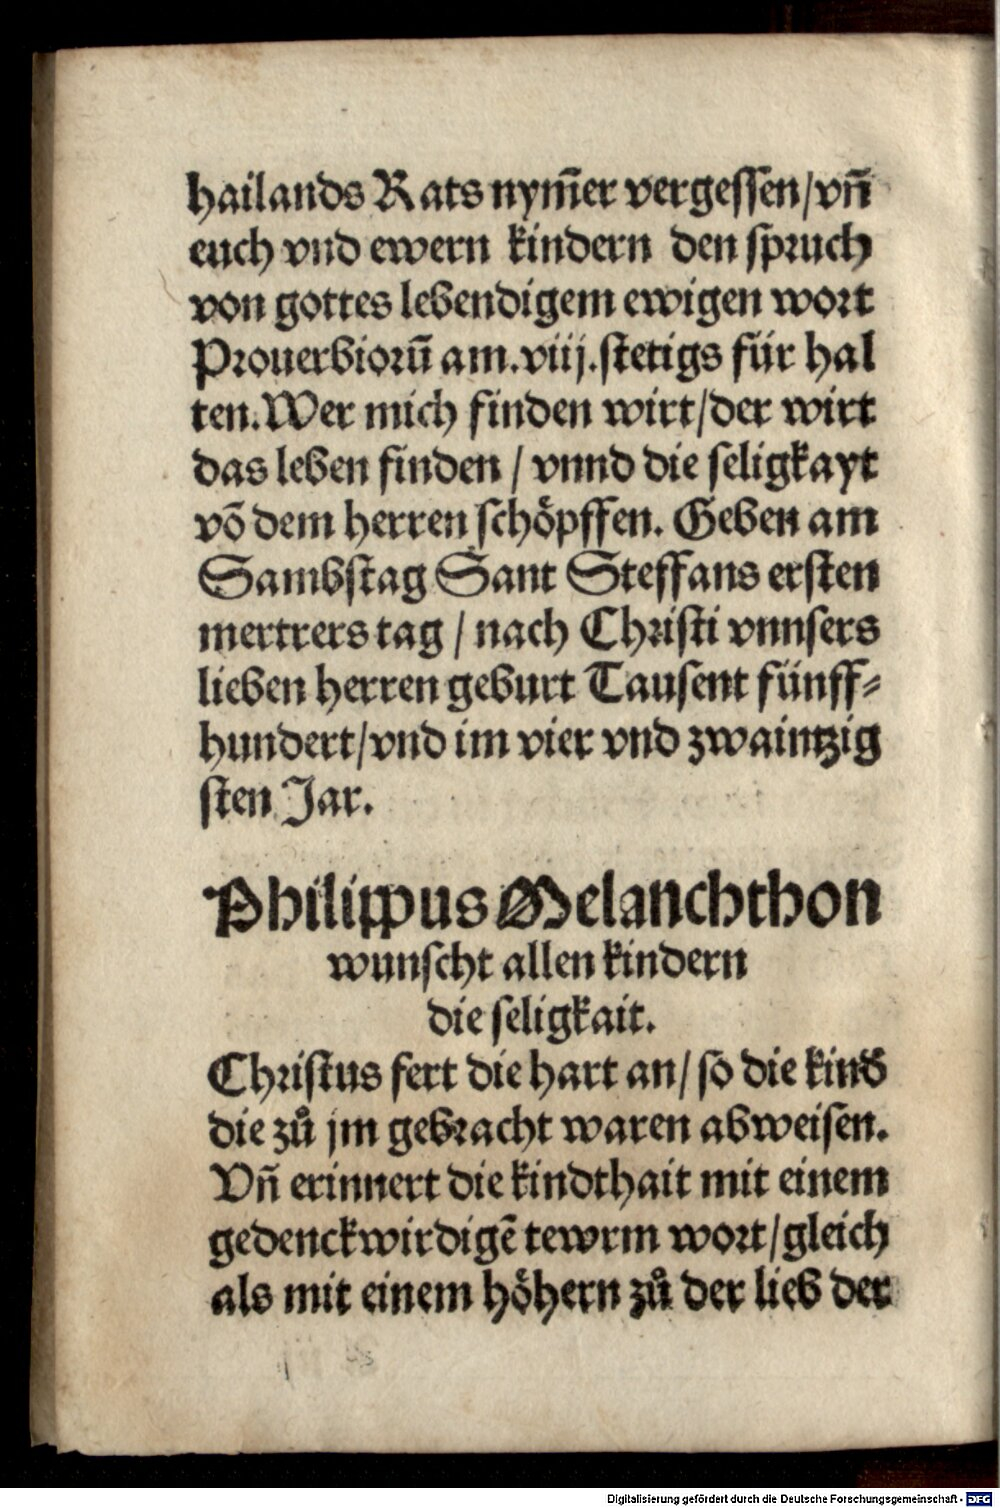 hailands Rats nym̄er vergessen/vn̄
euch vnd ewern kindern den spruch
von gottes lebendigem ewigen wort
Prouerbiorū am.viij.stetigs für hal
ten.Wer mich finden wirt/der wirt
das leben finden / vnnd die seligkayt
vō dem herren schöpffen. Geben am
Sambstag Sant Steffans ersten
mertrers tag / nach Christi vnnsers
lieben herren geburt Tausent fünff⸗
hundert/vnd im vier vnd zwaintzig
sten Jar.
Philippus Melanchthon
wunscht allen kindern
die seligkait.
Christus fert die hart an/ so die kind
die zů jm gebracht waren abweisen.
Vn̄ erinnert die kindthait mit einem
gedenckwirdigē tewrm wort/gleich
als mit einem höhern zů der lieb der
Digitalisierung gefördert durch die Deutsche Forschungsgemeinschaft - DFG